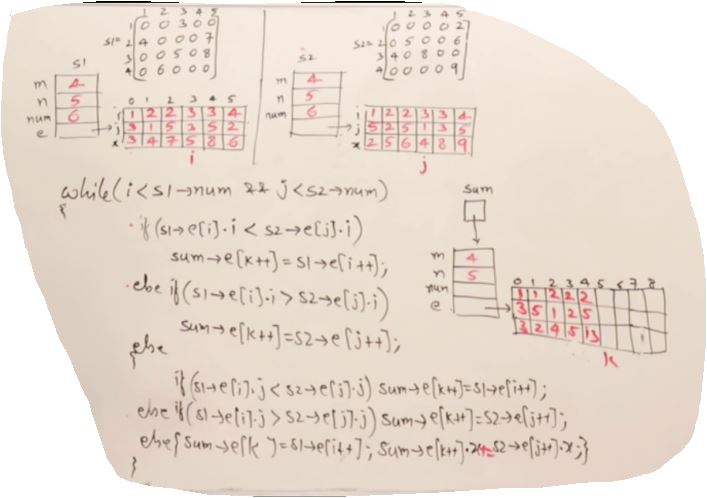 1 2 3 4 5
1 0 0 3 0 0
S1= 2 4 0 0 0 7
3 0 0 5 0 8
4 0 6 0 0 0
S1
m 4
n 5
num 6
e
0 1 2 3 4 5
i 1 2 2 3 3 4
j 3 1 5 3 5 2
x 3 4 7 5 8 6
i
1 2 3 4 5
1 0 0 0 0 2
S2= 2 0 5 0 0 6
3 4 0 8 0 0
4 0 0 0 0 9
S2
m 4
n 5
num 6
i 1 2 2 3 3 4
j 5 2 5 1 3 5
x 2 5 6 4 8 9
j
while(i<s1→num && j<s2→num)
{
if(s1→e[i].i < s2→e[j].i)
sum→e[k++]=s1→e[i++];
else if(s1→e[i].i > s2→e[j].i)
sum→e[k++]=s2→e[j++];
else
{
if(s1→e[i].j < s2→e[j].j) sum→e[k++]=s1→e[i++];
else if(s1→e[i].j > s2→e[j].j) sum→e[k++]=s2→e[j++];
else{sum→e[k ]=s1→e[i++]; sum→e[k++].x+=s2→e[j++].x;}
}
sum
m 4
n 5
num
e
0 1 2 3 4 5 6 7 8
1 1 2 2 2
3 5 1 2 5
3 2 4 5 13
k